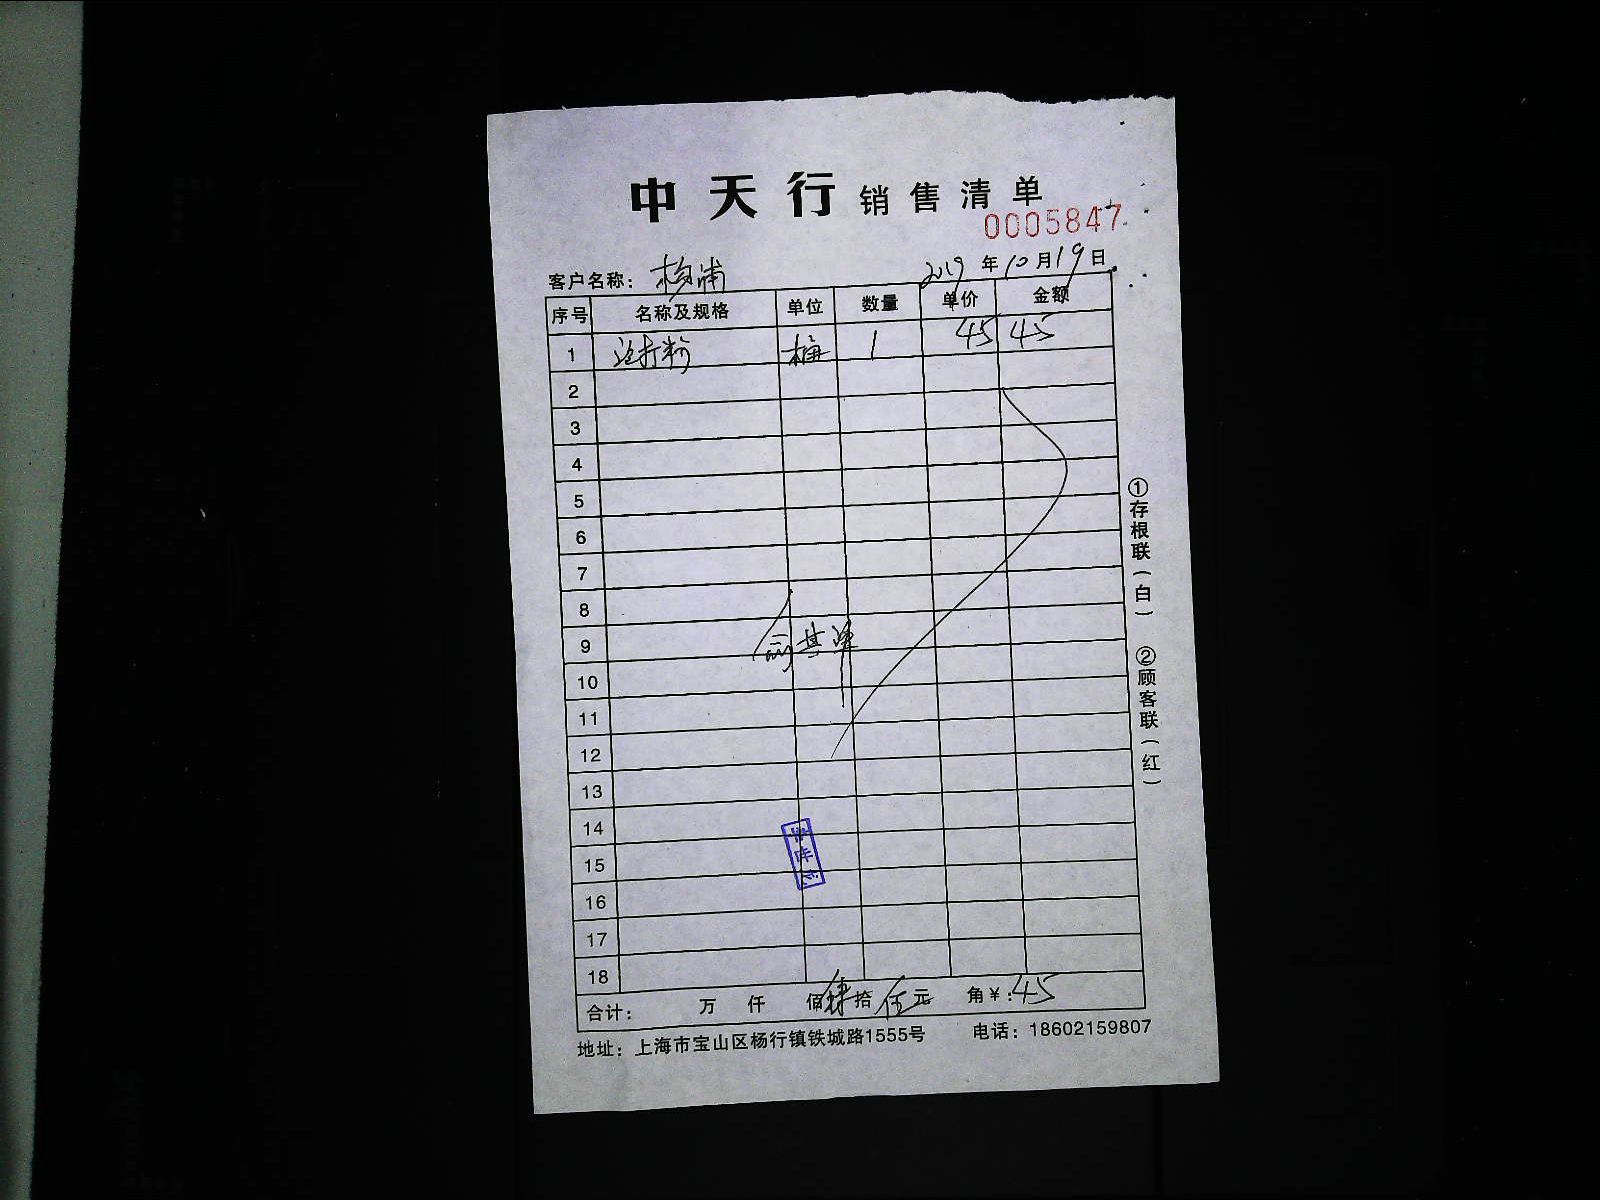 中天行 销售清单
0005847
客户名称：杨浦 2019年10月19日
序号 名称及规格 单位 数量 单价 金额
1 桶 1 45 45
2
3
4
5
6
7
8
9
10
11
12
13
14
15
16
17
18
合计： 万 仟 佰肆拾伍元 角￥：45
地址：上海市宝山区杨行镇铁城路1555号 电话：18602159807
①存根联（白） ②顾客联（红）